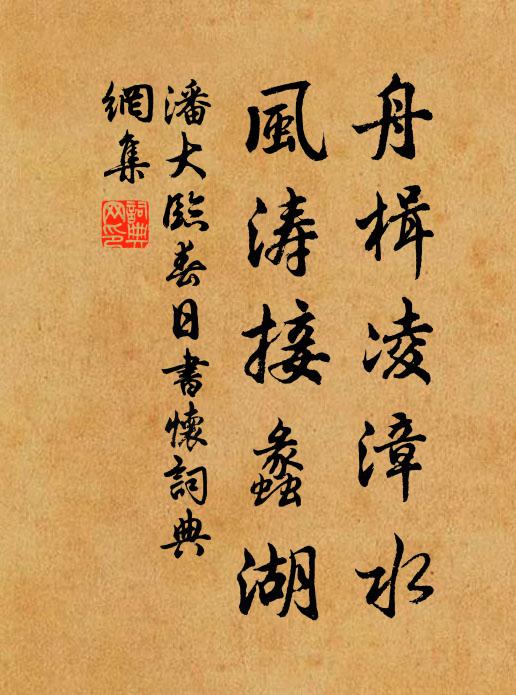 舟楫凌漳水
風濤接蠡湖
潘大臨春日書懷詞典
網集
詞典
网印